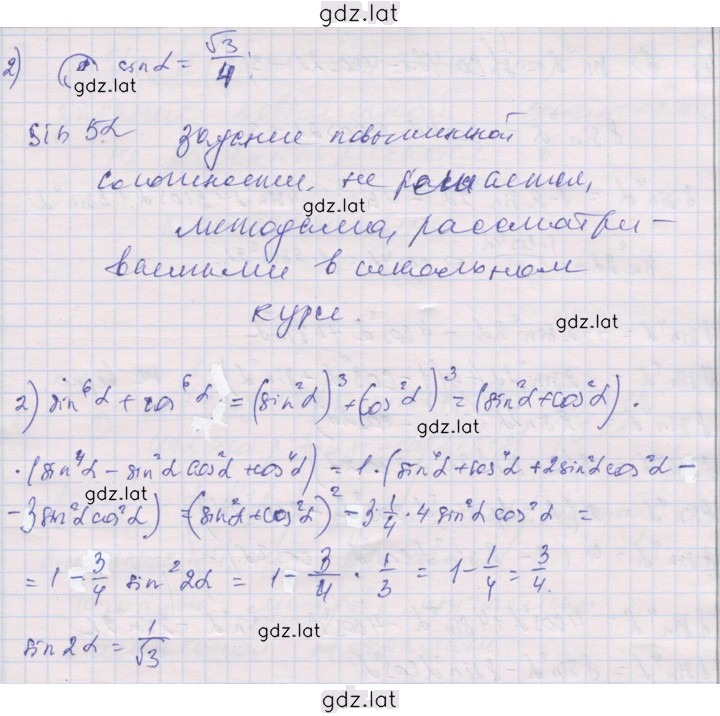 gdz.lat
2) sin α = √3/4;
gdz.lat
sin 5α задание повышенной
сложности, не решается,
gdz.lat
методами, рассматри-
ваемыми в школьном
курсе.
gdz.lat
2) sin⁶α + cos⁶α = (sin²α)³ + (cos²α)³ = (sin²α + cos²α) ·
· (sin⁴α - sin²α cos²α + cos⁴α) = 1 · (sin⁴α + cos⁴α + 2sin²α cos²α -
gdz.lat
- 3sin²α cos²α) = (sin²α + cos²α)² - 3 · 1/4 · 4 sin²α cos²α =
= 1 - 3/4 sin²2α = 1 - 3/4 · 1/3 = 1 - 1/4 = 3/4.
gdz.lat
sin 2α = 1/√3
gdz.lat